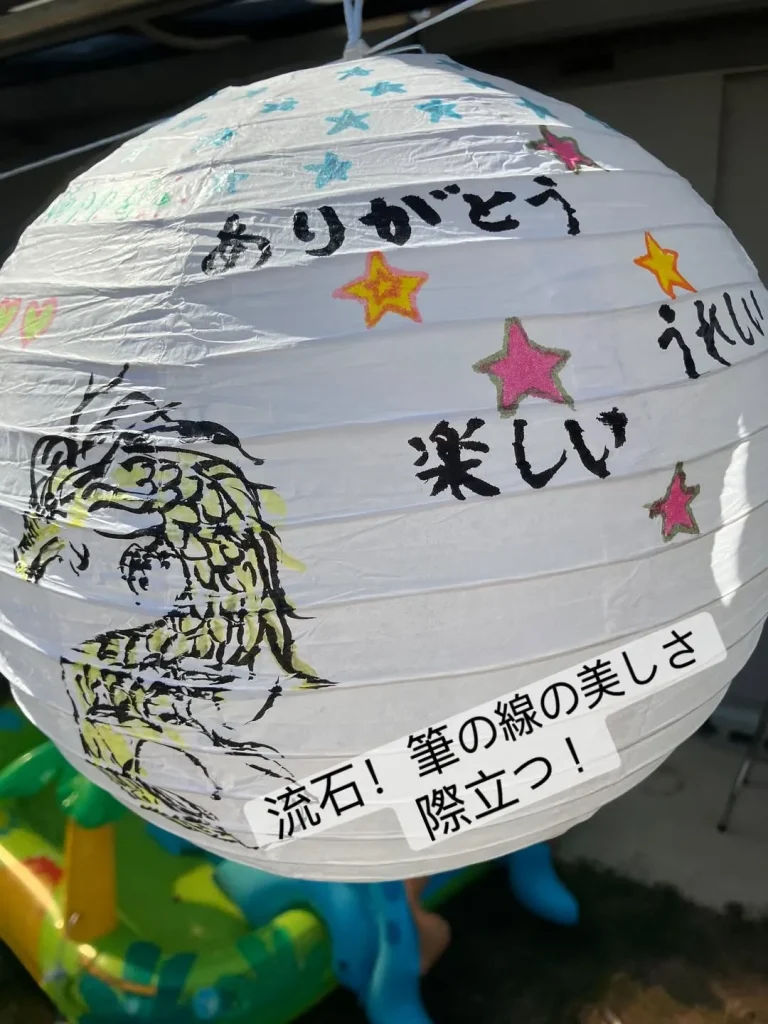 ありがとう
うれしい
楽しい
流石！筆の線の美しさ
際立つ！